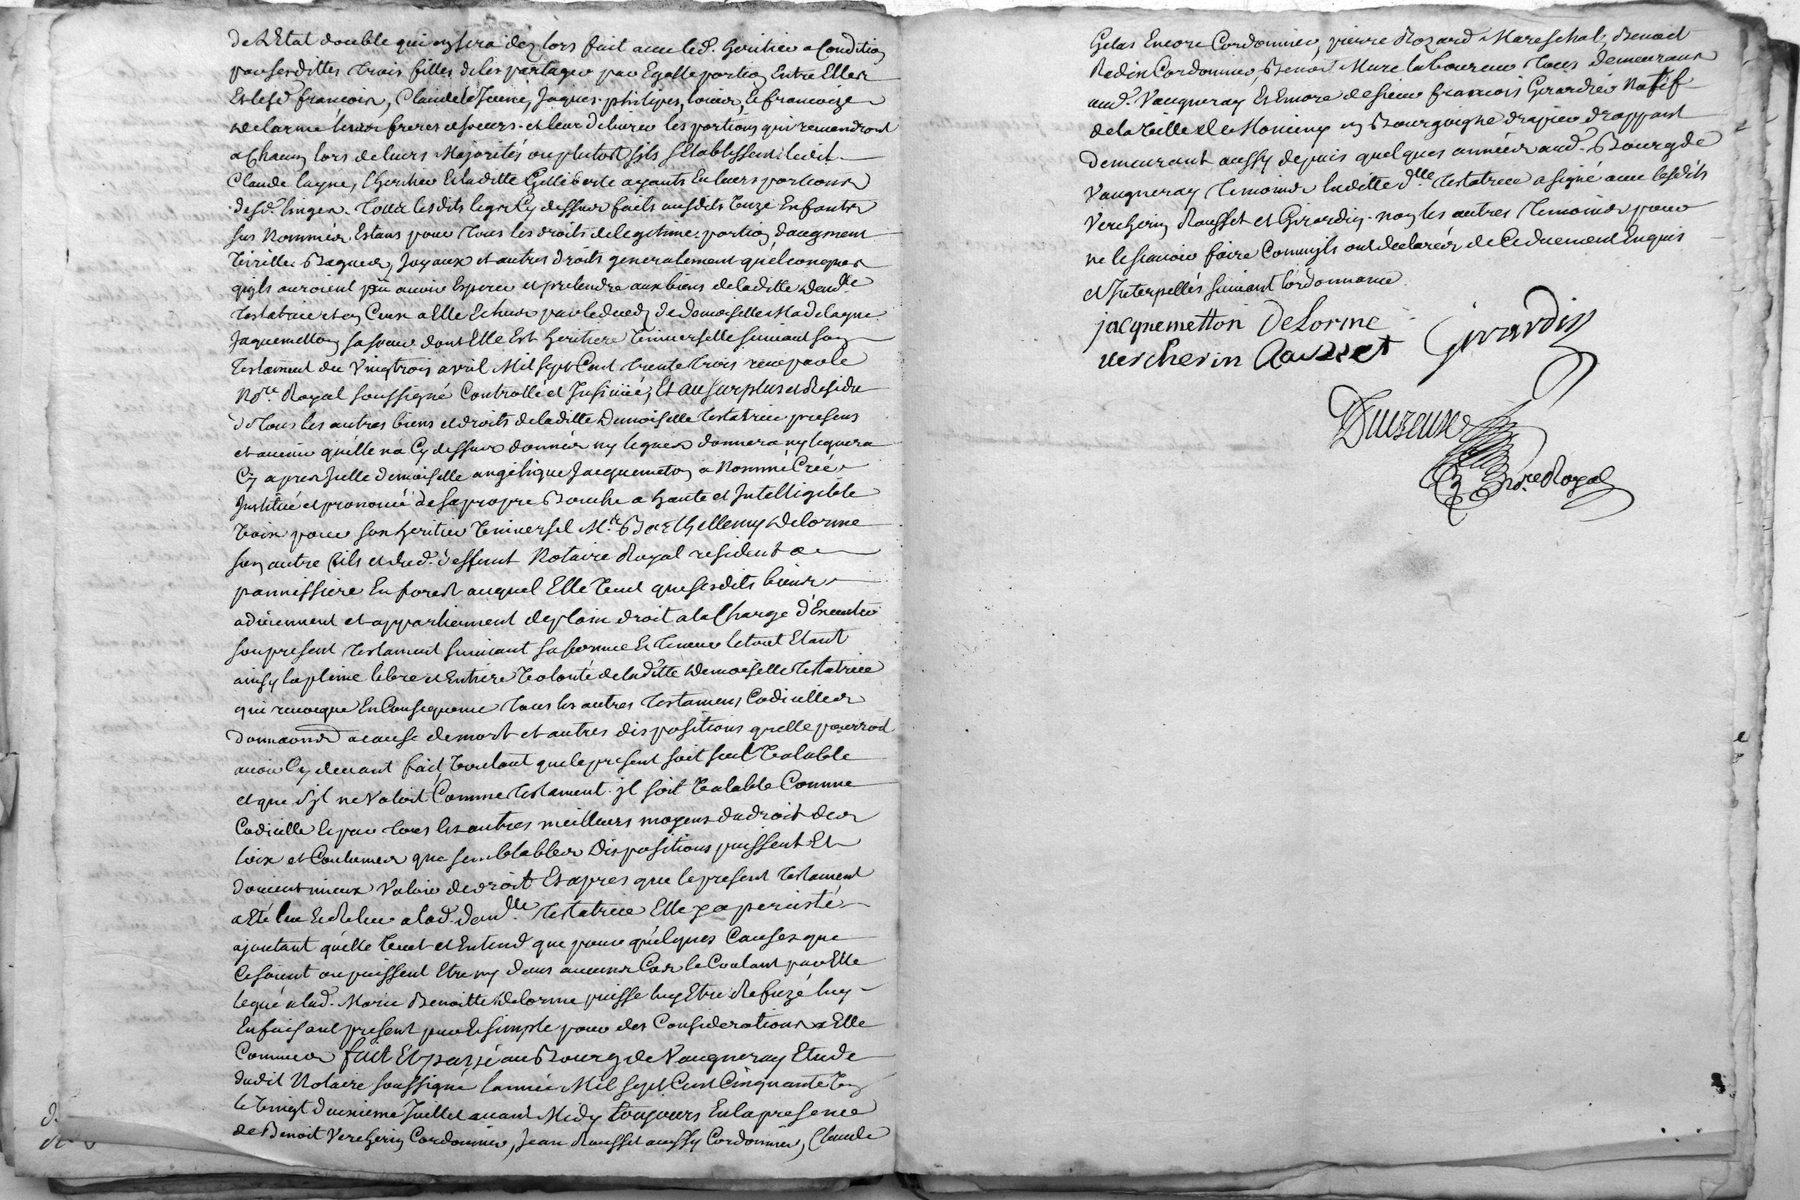 de L'Etat double qui en sera dez lors fait avec led. heritier a Condition
par sesdittes trois filles de les partager par Egalle portion Entre Elles
Et lesd. francois, Claude le Jeune, Jaques, philipes, loüis, Et francoize
Delorme leurs freres et soeurs et leur delivrer les portions qui reviendront
a Chacun lors de leurs Majorités ou plutot s'ils s'Etablissent ledit
Claude layné, l'heritier Et laditte Gilliberte ayants Eu leurs portions
desd. linges. Tous lesdits legs Cy dessus faits ausdits Unze Enfants
sus Nommés Estans pour tous les droits de legitime portion d'augment
Virilles Bagues, Joyaux et autres droits generalement quelconques
qu'ils auroient pû avoir Esperer et pretendre aux biens de laditte dem.lle
testatrice et en Ceux a Elle Echeus par le deced de demoiselle Madelayne
Jaquemetton sa soeur dont Elle Est heritiere Universelle suivant son
testament du Vingt trois avril Mil Sept Cent trente trois reçu par le
No.re Royal soussigné Controllé et Insinüé, Et au surplus et Residu
de tous les autres biens et droits de laditte Demoiselle testatrice presens
et avenir qu'elle n'a Cy dessus donnés ny legués donnera ny leguera
Cy apres Icelle demoiselle angelique Jacquemeton a Nommé Créé
Institué et prononcé de sa propre Bouche a haute et Intelligible
Voix pour son heritier Universel M.e Barthellemy Delorme
son autre fils et dud. deffunt Notaire Royal resident a
pannissiere En forest auquel Elle Veut que sesdits biens
adviennent et appartiennent de plain droit a la Charge d'Executer
son present testament suivant sa forme Et teneur le tout Etant
ainsy la pleine libre et Entiere Volonté de laditte Demoiselle testatrice
qui revoque En Consequence tous les autres testamens, Codicilles
donnations a cause de mort et autres dispositions qu'elle pourroit
avoir Cy devant fait Voulant que le present soit seul Valable
et que s'jl ne Valoit Comme testament jl soit Valable Comme
Codicille Et par tous les autres meilleurs moyens du droit des
loix et Coutumes que semblables Dispositions puissent Et
doivent mieux Valoir de droit Et apres que le present testament
a Eté lu Et Relu a lad. dem.lle testatrice Elle y a percisté
ajoutant qu'elle Veut et Entend que pour quelques Causes que
Ce soient ou puissent Etre ny dans aucuns Cas le Coulant par Elle
legué a lad. Marie Benoitte Delorme puisse luy Etre Refuzé luy
En faisant present pur Et simple pour des Considerations a Elle
Connües fait Et passé au Bourg de Vaugneray Etude
dudit Notaire soussigné l'année Mil Sept Cent Cinquante Un
le Vingt deuxieme Juillet avant Midy toujours En la presence
de Benoit Vercherin Cordonnier, Jean Rousset aussy Cordonnier, Claude
Gelas Encore Cordonnier, pierre Rozard Mareschal, Benoit
Cordonnier, Benoit laboureur tous demeurans
aud. Vaugneray Et Encore de sieur francois Girardin Natif
de la Ville de en Bourgoigne drapier drappant
demeurant aussy depuis quelques années aud. Bourg de
Vaugneray temoins laditte d.lle testatrice a signé avec lesdits
Vercherin Rousset et Girardin non les autres temoins pour
ne le scavoir faire Comm'ils ont declarés de Ce düement Enquis
et Interpellés suivant l'ordonnance.
jacquemetton DeLorme
vercherin Rousset Girardin
Duizeux
No.re Royal